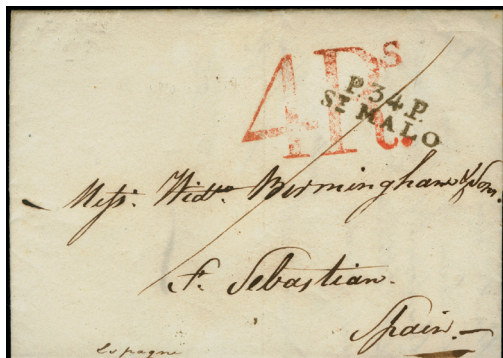 4Rs
P.34.P.
ST MALO
Messrs. Widw. Birmingham & Son.
St. Sebastian.
Spain.
Espagne